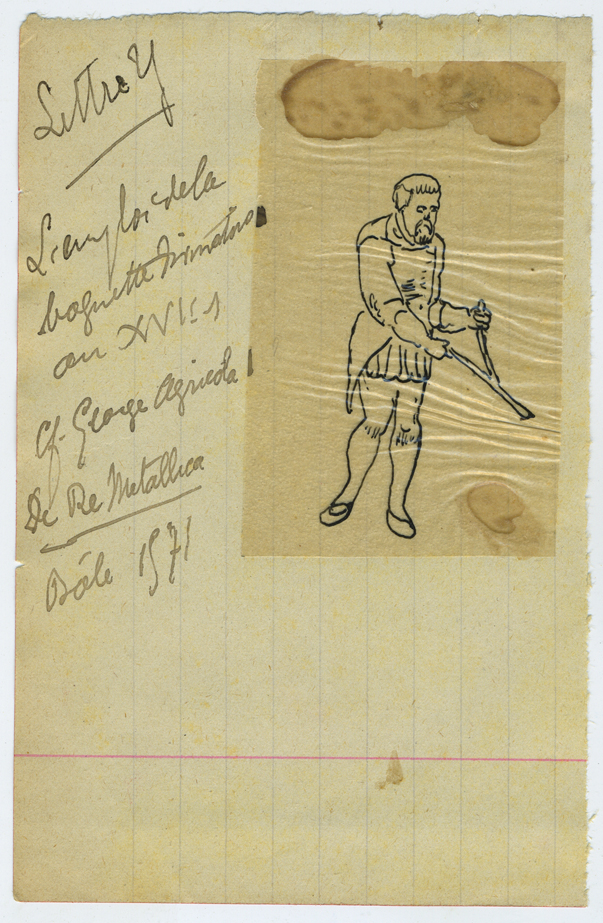 Lettre Y
L'emploi de la
baguette divinatoire
au XVI: s
Cf. George Agricola
De Re Metallica
Bâle 1571